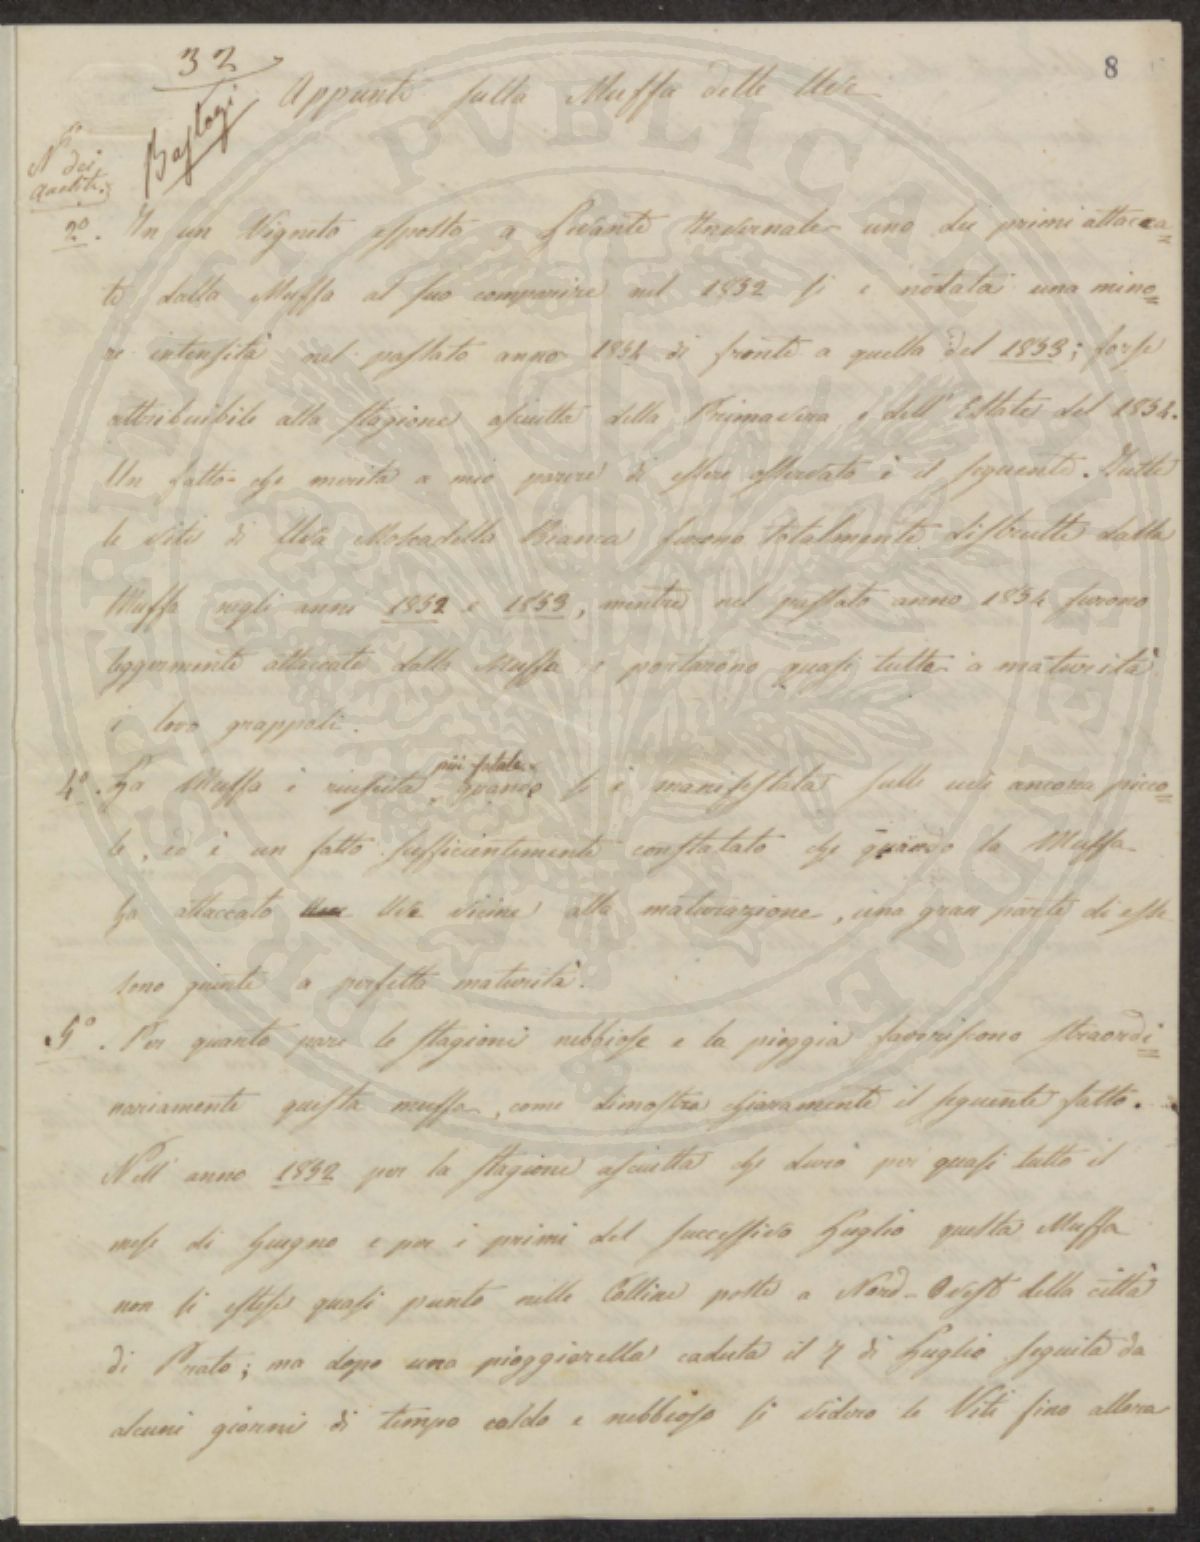 32
8
Bastogi
Appunti sulla Muffa delle Uve
Ni dei
Quesiti.
2º. In un Vigneto esposto a Levante Invernale uno dei primi attacca=
ti dalla Muffa al suo comparire nel 1852 si è notata una mino=
re intensità nel passato anno 1854 di fronte a quella del 1853; forse
attribuibile alla stagione asciutta della Primavera e dell' Estate del 1854.
Un fatto che merita a mio parere di essere osservato è il seguente. Tutte
le viti di Uva Moscadella Bianca furono totalmente distrutte dalla
Muffa negli anni 1852 e 1853, mentre nel passato anno 1854 furono
leggermente attaccate dalla Muffa e portarono quasi tutte a maturità
i loro grappoli.
4º. La Muffa è riuscita più fatale quando si è manifestata sulle uve ancora picco=
le, ed è un fatto sufficientemente constatato che quando la Muffa
ha attaccato Uve vicine alla maturazione, una gran parte di esse
sono giunte a perfetta maturità.
5º. Per quanto pare le stagioni nebbiose e la pioggia favoriscono straordi=
nariamente questa muffa, come dimostra chiaramente il seguente fatto.
Nell' anno 1852 per la stagione asciutta che durò per quasi tutto il
mese di Giugno e per i primi del successivo Luglio questa Muffa
non si estese quasi punto nelle Colline poste a Nord-Ovest della città
di Prato; ma dopo una pioggiarella caduta il 7 di Luglio seguita da
alcuni giorni di tempo caldo e nebbioso si videro le Viti fino allora